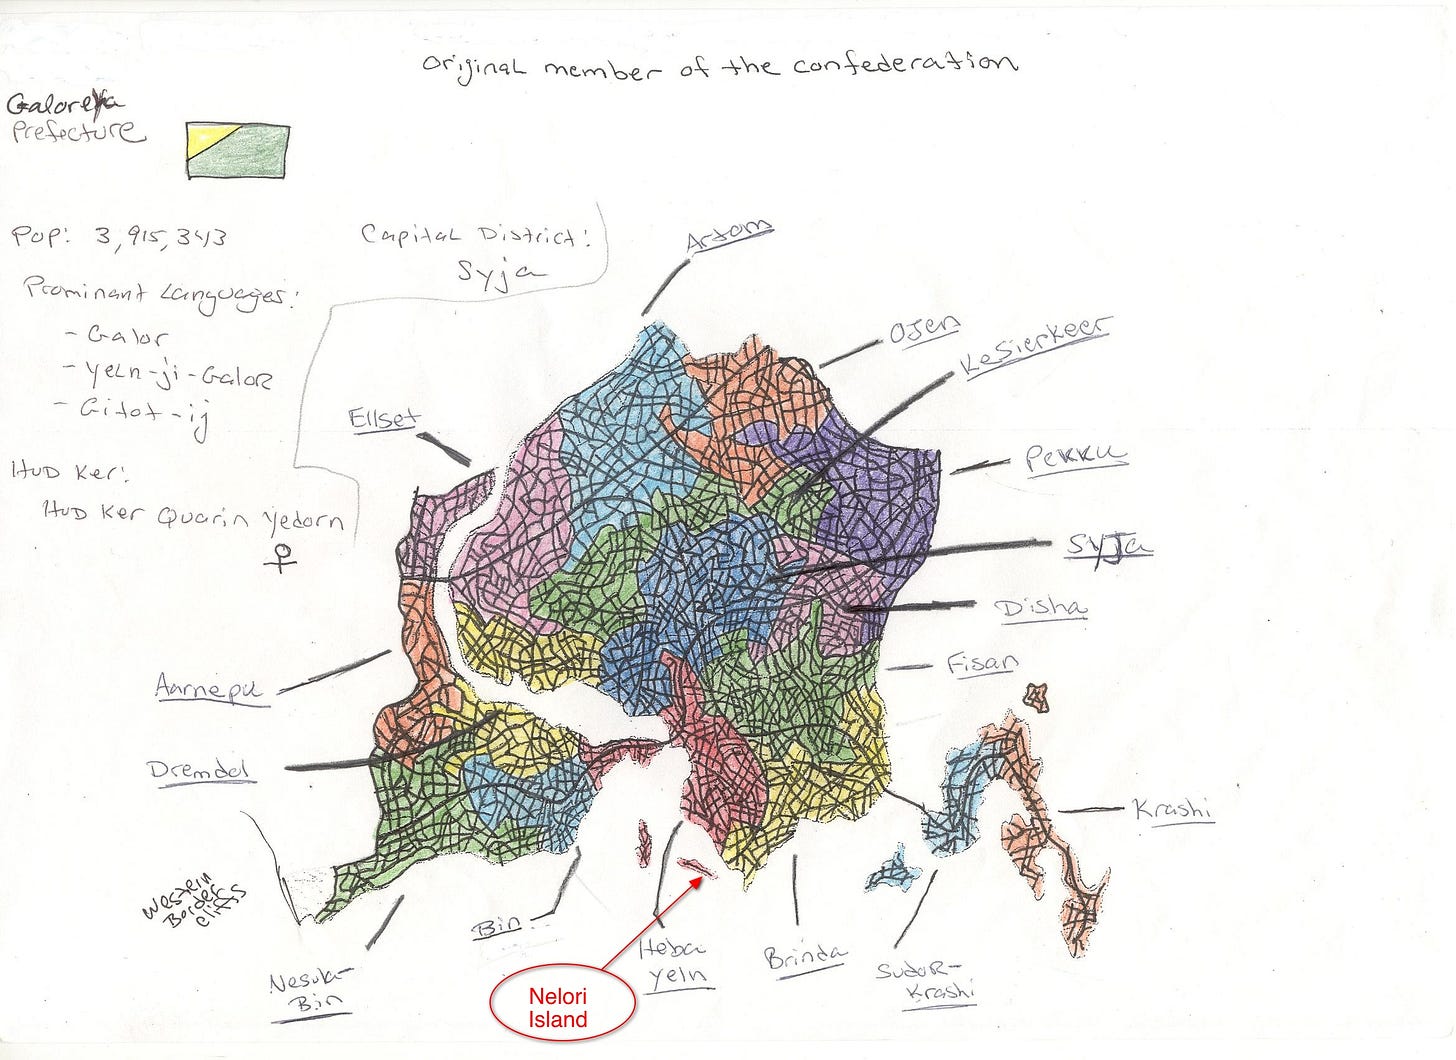 Original member of the confederation
Galoreya
Prefecture
Pop: 3,915,343
Capital District:
Syja
Prominant Languages:
- Galor
- Yeln-ji-Galor
- Gitot-ij
Hud Ker:
Hud Ker Quarin Yedorn
♀
Artom
Ojen
KeSierkeer
Ellset
Pekku
Syja
Disha
Fisan
Aarnepu
Dremdel
Krashi
Western
Border
cliffs
Bin
Heba
Yeln
Brinda
Sudor-
Krashi
Nesula-
Bin
Nelori
Island